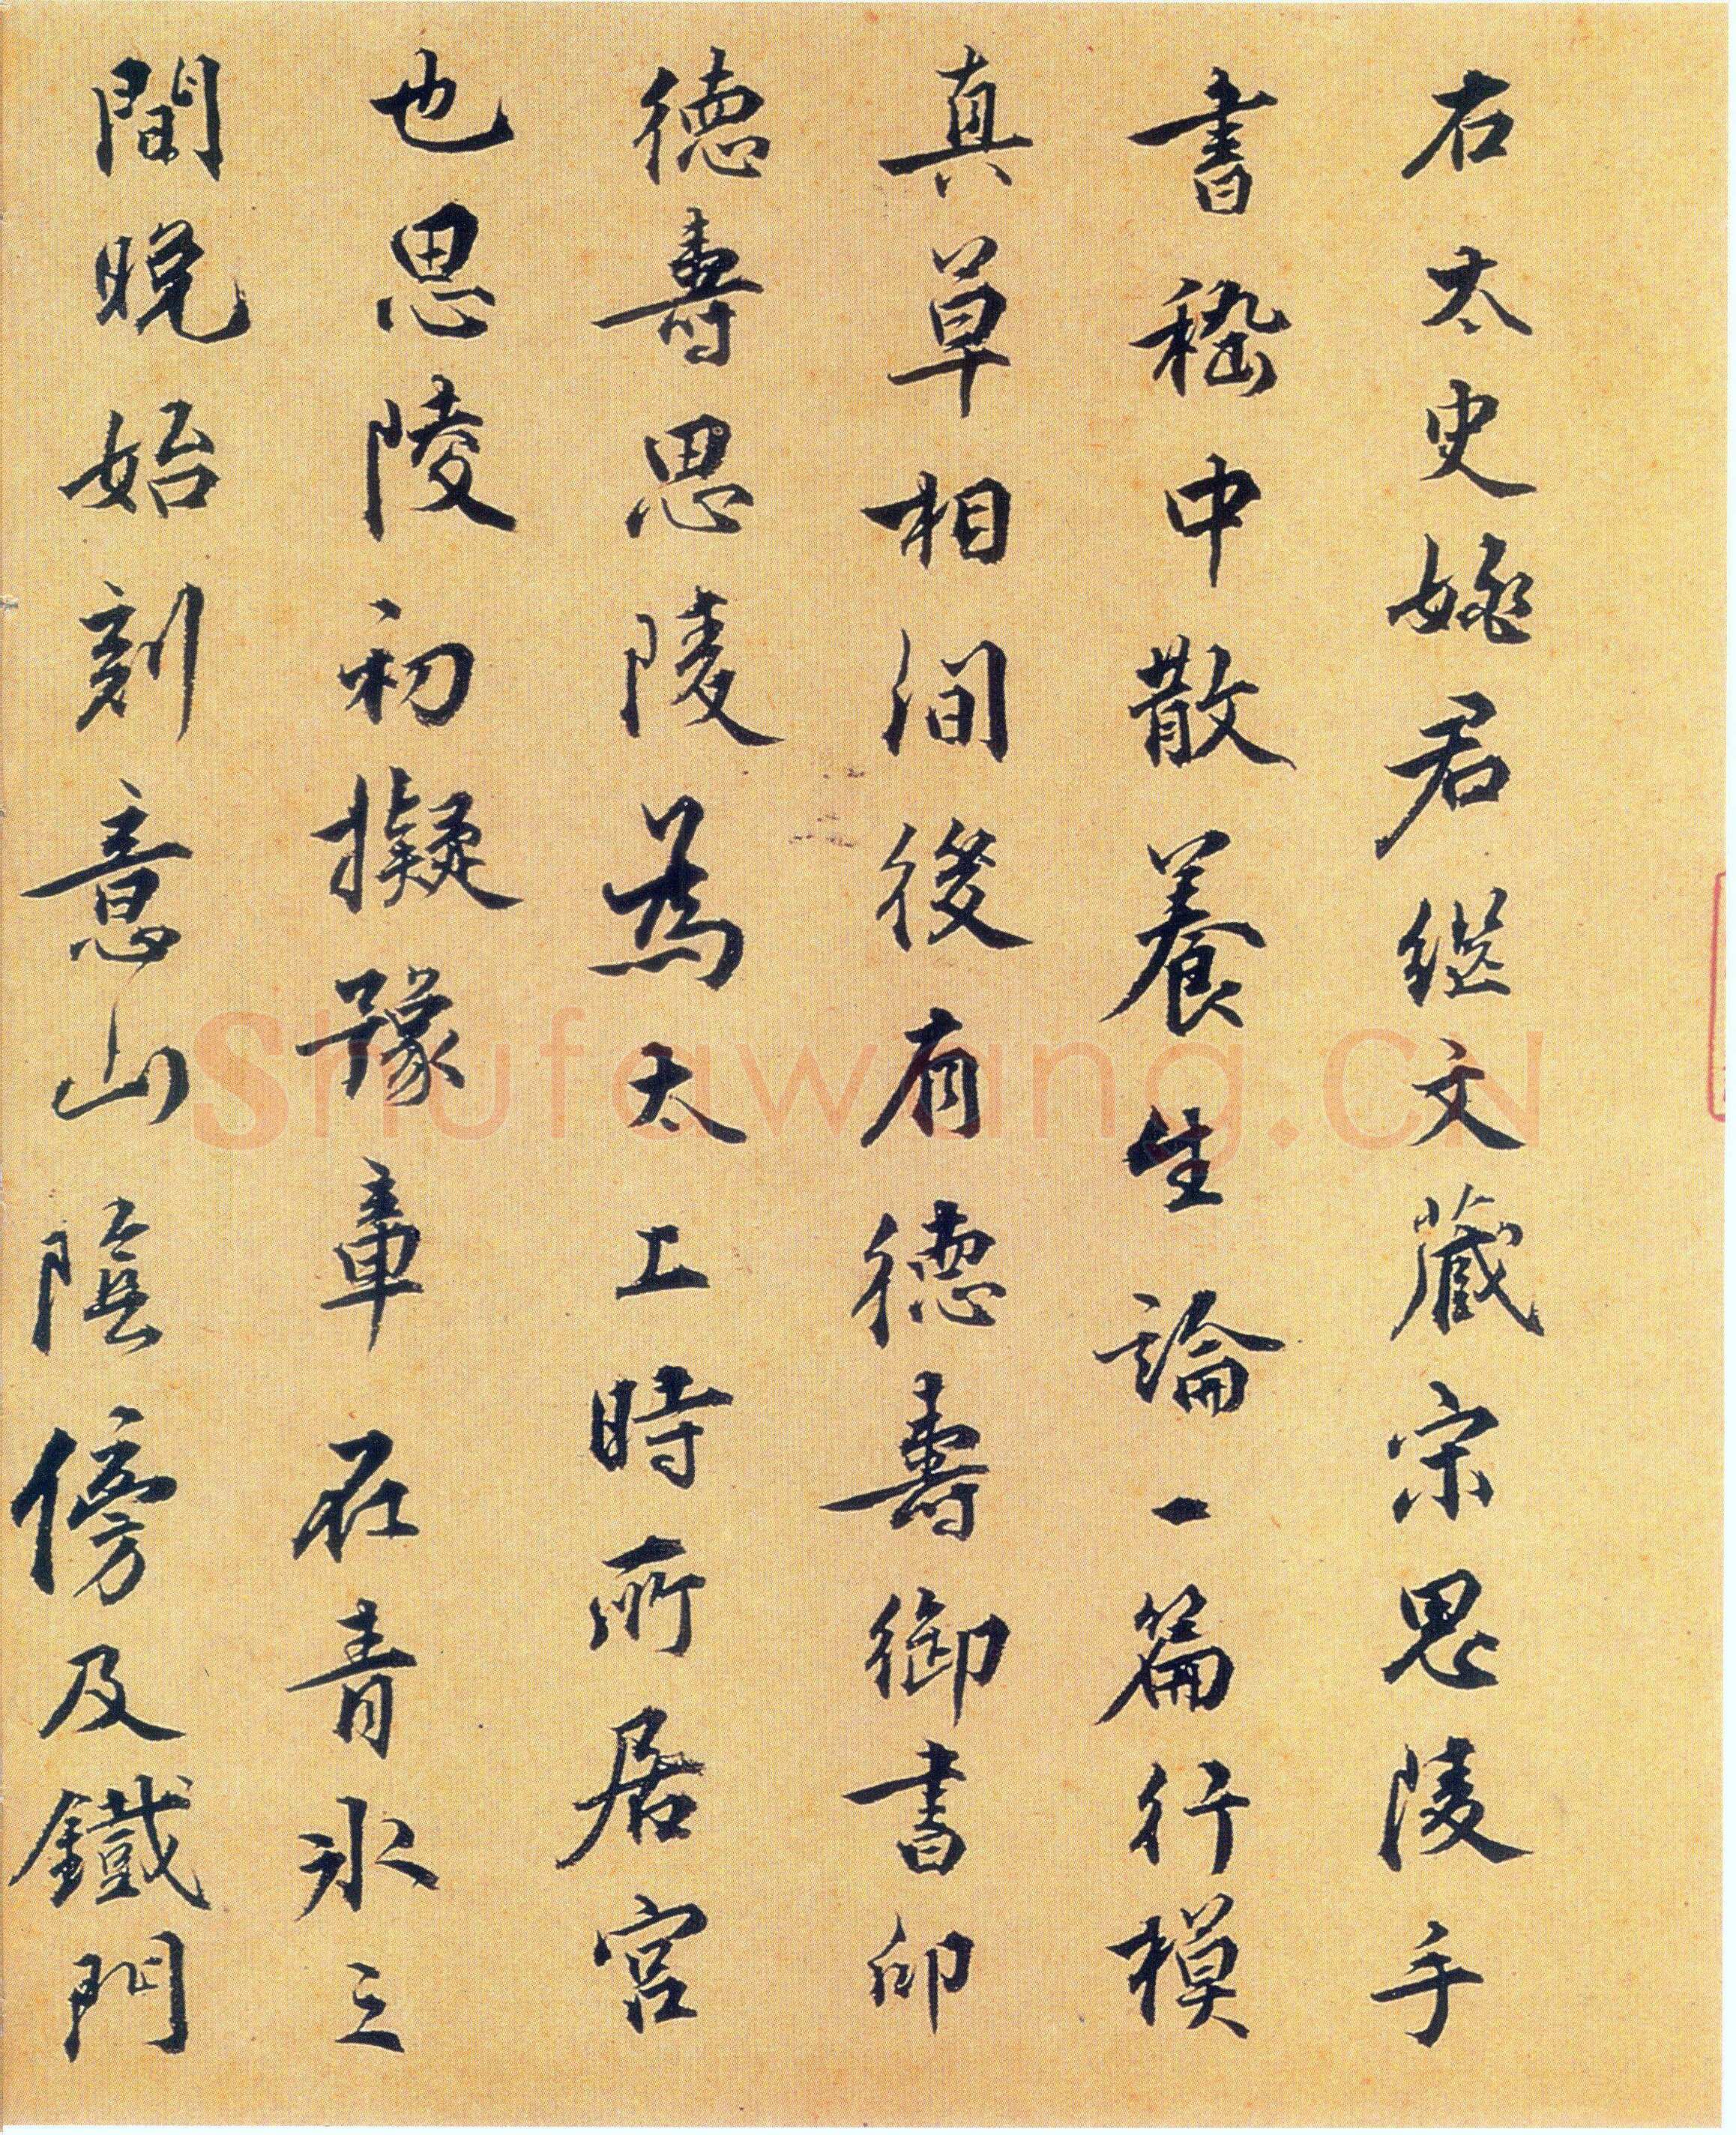 右太史姚君繼文藏宋思陵手
書嵇中散養生論一篇行模
真草相間後有德壽御書印
德壽思陵為太上時所居宮
也思陵初擬豫章在青氷之
間晚始刻意山陰傍及鐵門
Shufawang.CN